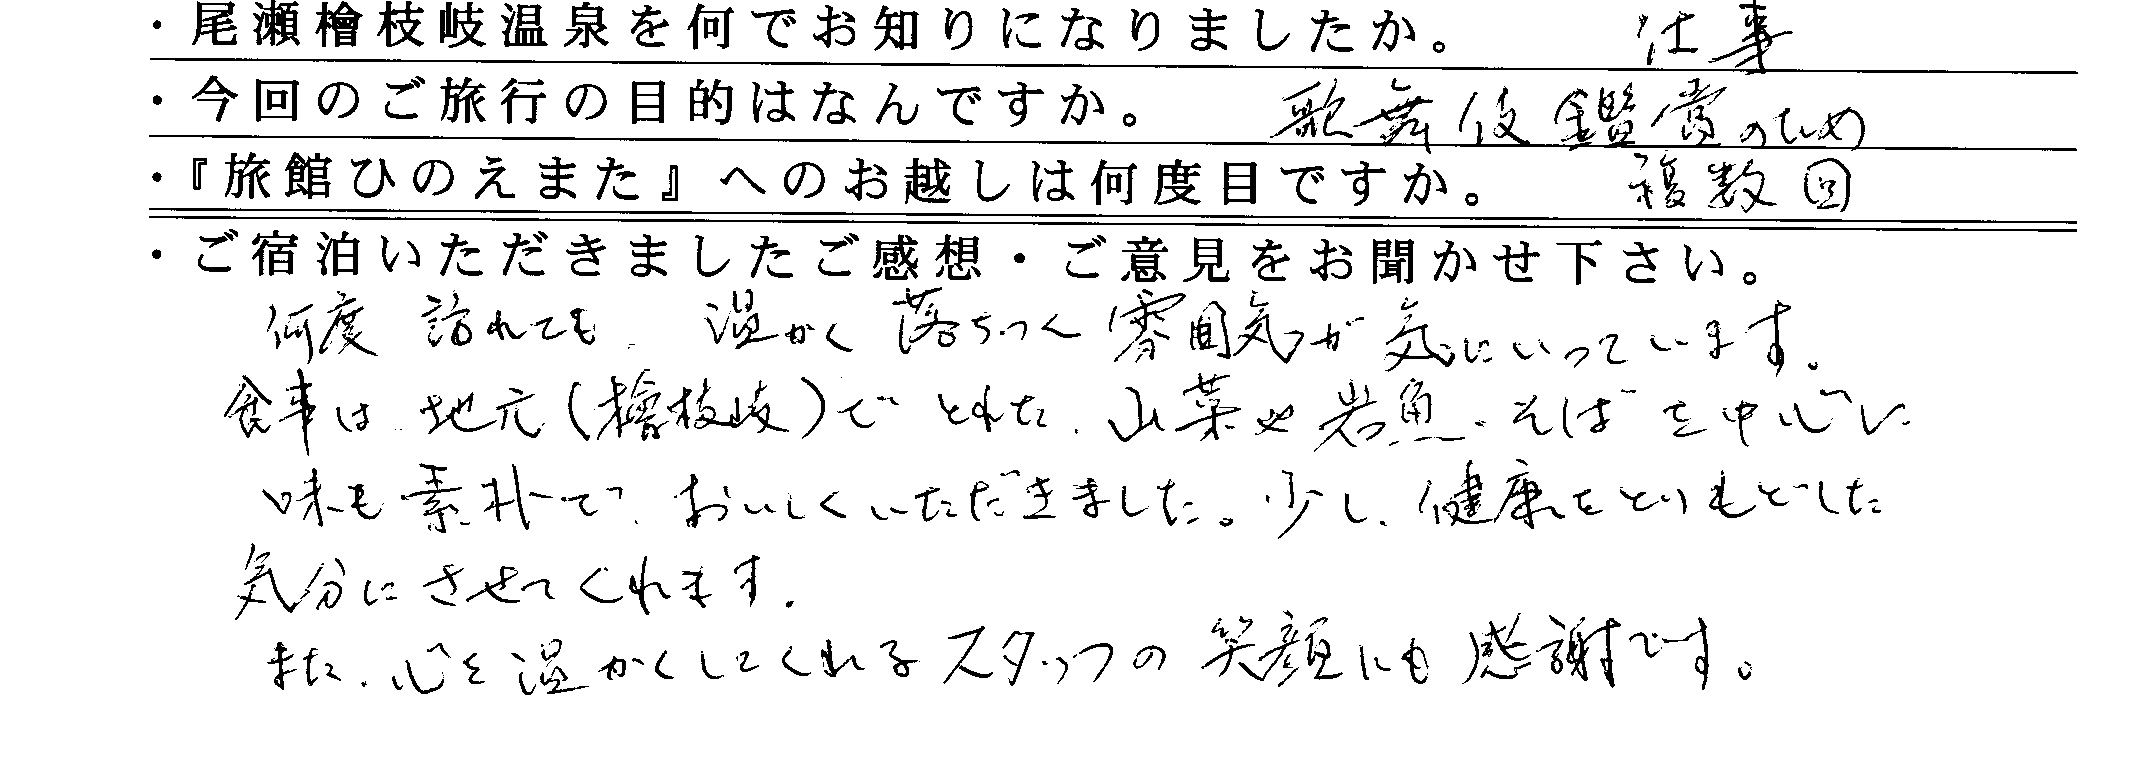 ・尾瀬檜枝岐温泉を何でお知りになりましたか。 仕事
・今回のご旅行の目的はなんですか。 歌舞伎鑑賞のため
・『旅館ひのえまた』へのお越しは何度目ですか。 複数回
・ご宿泊いただきましたご感想・ご意見をお聞かせ下さい。
何度訪れても、温かく落ちつく雰囲気が気にいっています。
食事は、地元(檜枝岐)でとれた、山菜や岩魚、そばを中心に
味も素朴で、おいしくいただきました。少し、健康をとりもどした
気分にさせてくれます。
また、心を温かくしてくれるスタッフの笑顔にも感謝です。